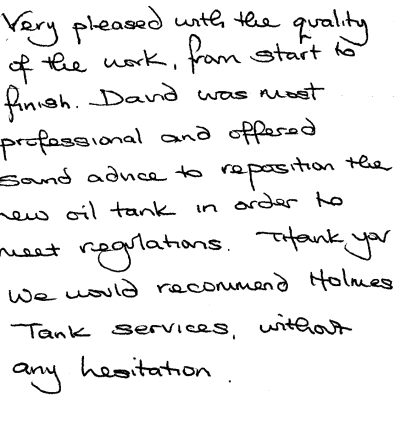 Very pleased with the quality
of the work, from start to
finish. David was most
professional and offered
sound advice to reposition the
new oil tank in order to
meet regulations. Thank you
We would recommend Holmes
Tank services, without
any hesitation.